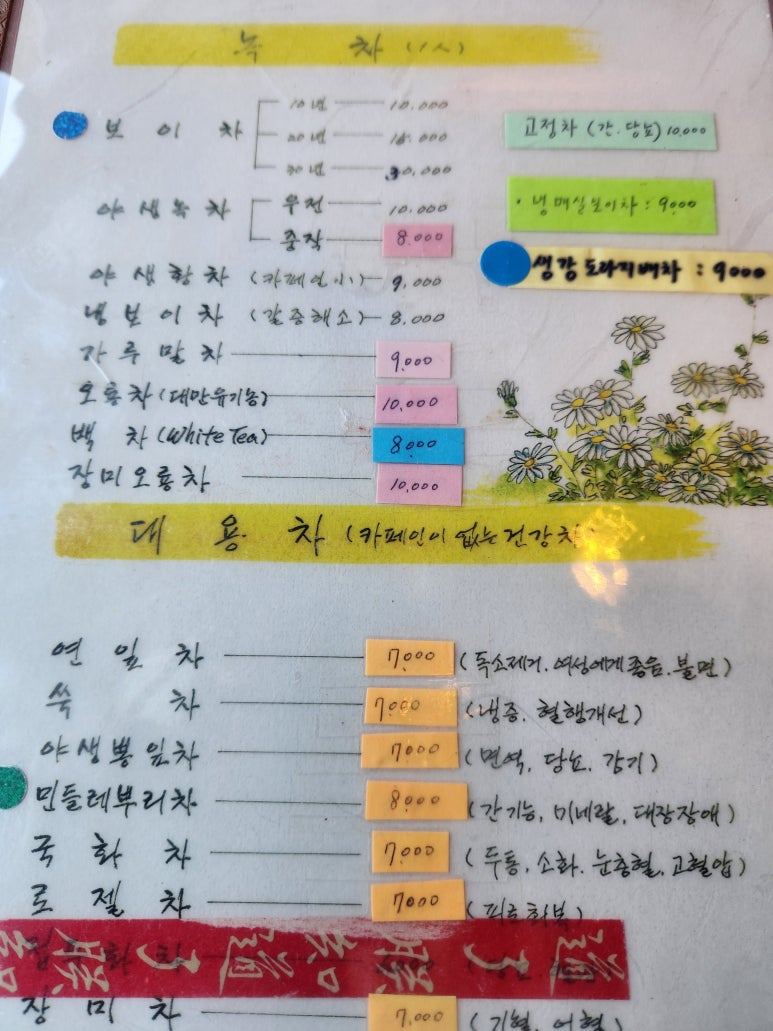 녹 차 (1人)
보 이 차
10년 10.000
20년
30년 30,000
고정차 (간.당뇨) 10,000
야 생 녹 차
우전 10.000
중작 8.000
· 냉매실보이차 : 9000
생강도라지배차 : 9000
야 생 황 차 (카페인 小) 9,000
냉 보 이 차 (갈증해소) 8.000
가 루 말 차 9,000
오룡차 (대만유기농) 10,000
백 차 (White Tea) 8,000
장미오룡차 10,000
대 용 차 (카페인이 없는 건강차)
연 잎 차 7.000 (독소제거. 여성에게좋음. 불면)
쑥 차 7.000 (냉증, 혈행개선)
야생뽕잎차 7000 (면역, 당뇨. 감기)
민들레뿌리차 8000 (간기능, 미네랄, 대장장애)
국 화 차 7000 (두통, 소화. 눈충혈, 고혈압)
로 젤 차 7000 (피로회복)
장 미 차 7,000